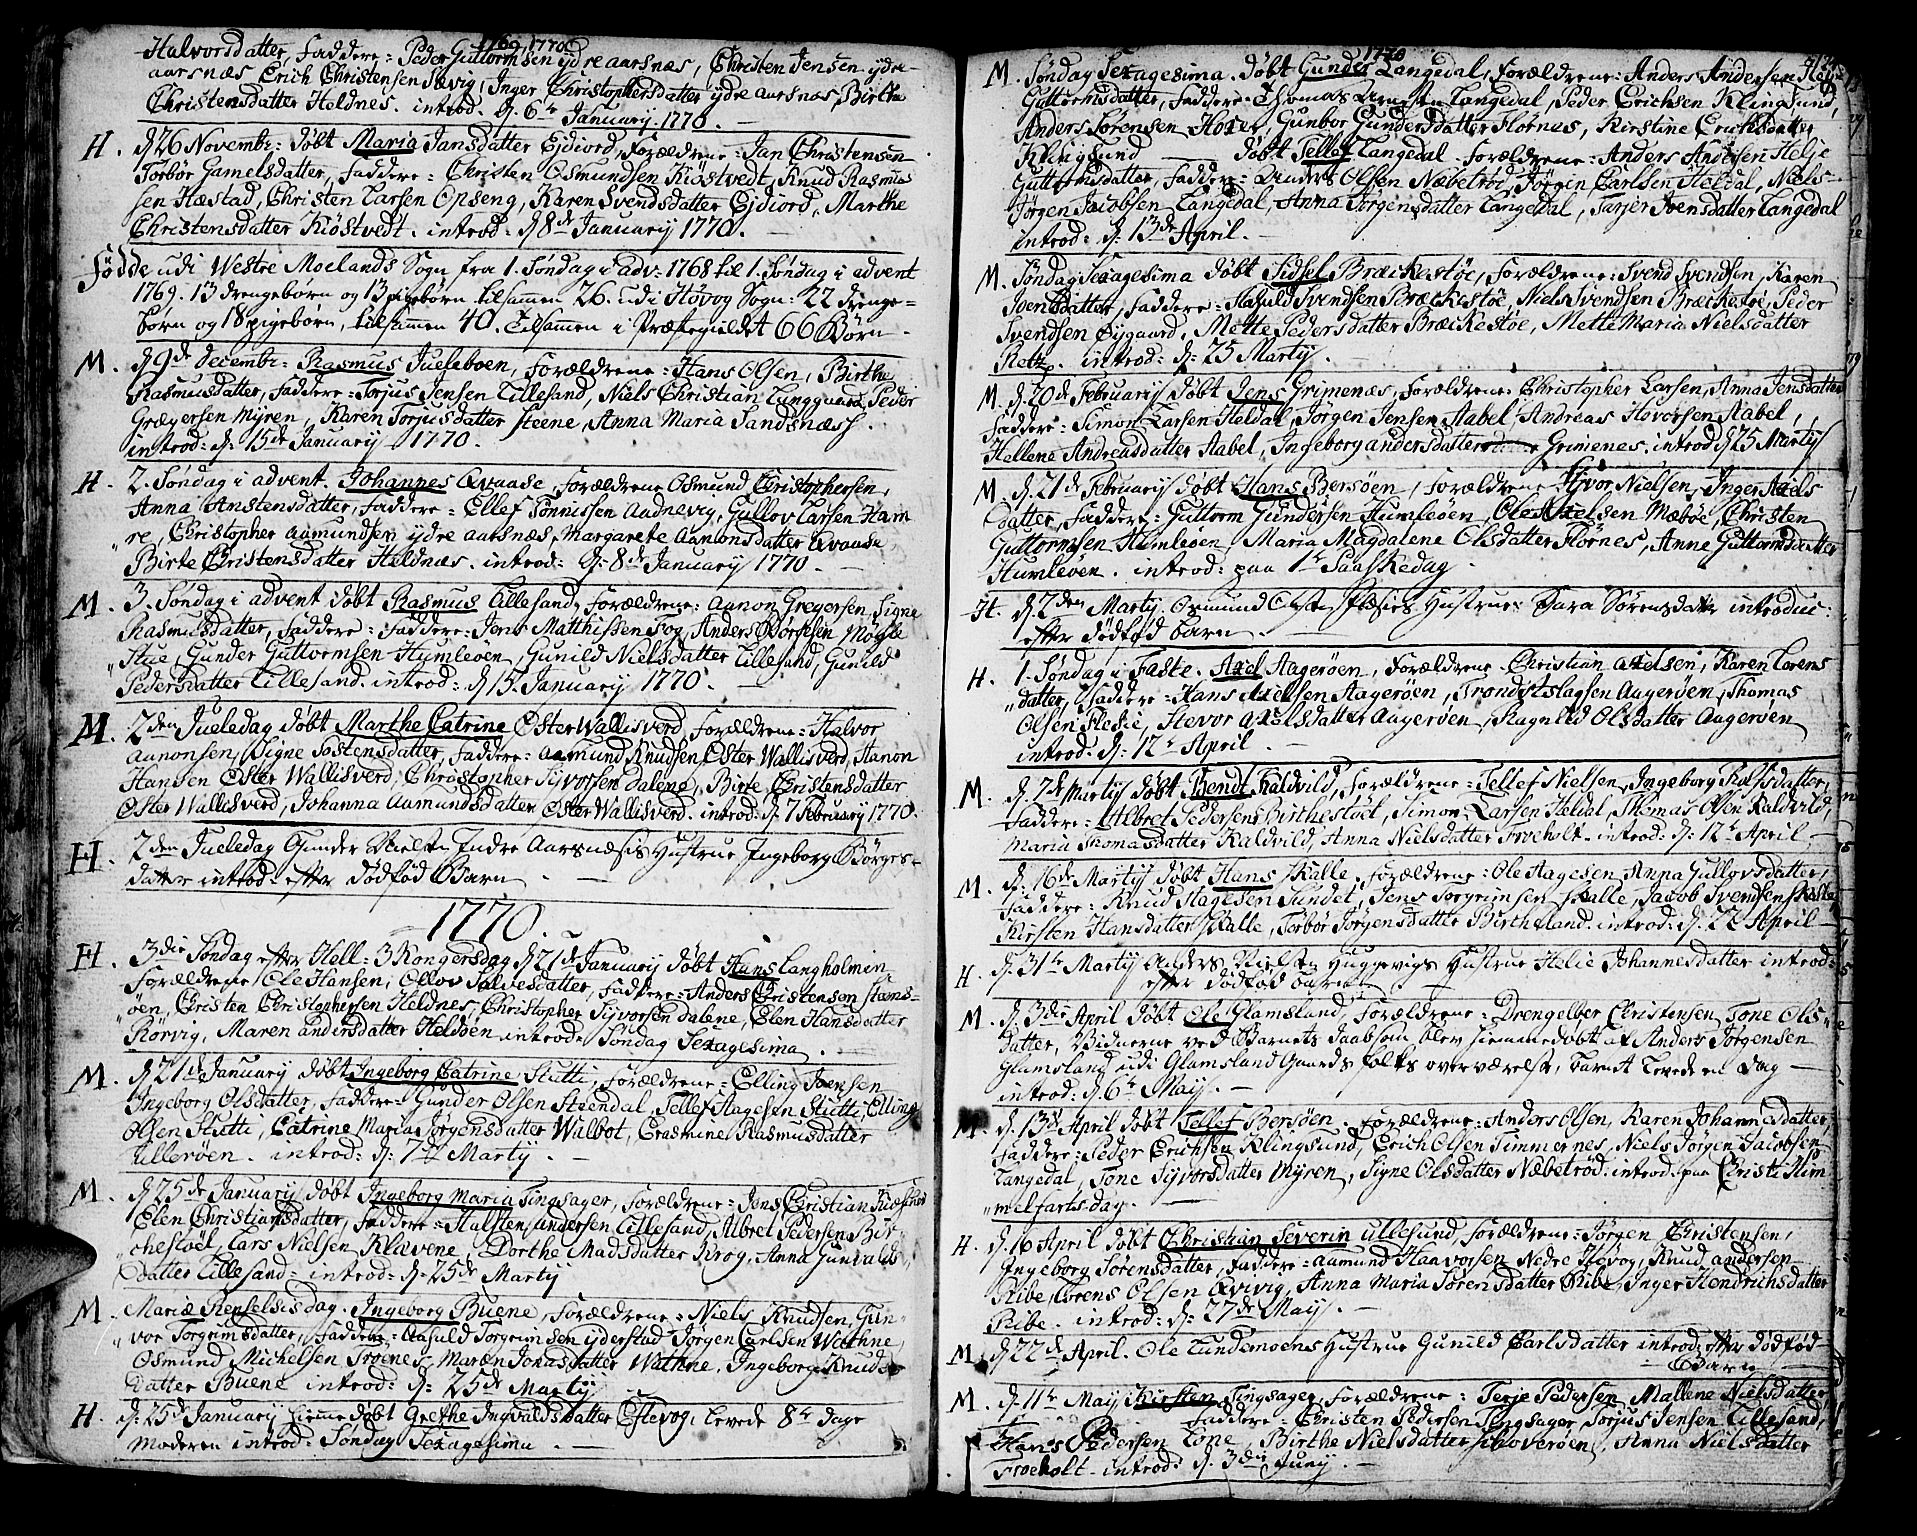 1769, 1770
Halvorsdatter, Faddere = Peder Guttormsen ydre aarsnæs, Christen Jensen ydre
aarsnæs Erich Christensen Sævig, Inger Christophersdatter ydre aarsnæs Birthe
Christensdatter Heldnes. introd. d. 6te January. 1770.
H. d 26 Novembr: døbt Maria Jansdatter Ejdiord, Forældrene = Jan Christensen
Torbør Gamelsdatter, Faddere = Christen Osmundsen Kiøstvedt, Knud Rasmus
sen Hæstad, Christen Larsen Opseng, Karen Svendsdatter Ejdiord, Marthe
Christensdatter Kiøstvedt. introd. d 8de January 1770.
Fødde udi Westre Moelands Sogn fra 1. Søndag i adv: 1768 til 1. Søndag i advent
1769. 13 drengebørn og 13 pigebørn tilsammen 26. udi Høvog Sogn: 22 drenge=
børn og 18 pigebørn, tilsammen 40. Tilsammen i Præstegieldet 66 Børn.
M. d 9de decembr: Rasmus Jueleboen, Forældrene = Hans Olsen, Birthe
Rasmusdatter, Faddere = Torjus Jensen Lillesand, Niels Christian Lunggaard, Peder
Grægersen Myren, Karen Torjusdatter Steene, Anna Maria Sandsnæss.
introd: d. 15de January 1770.
H. 2. Søndag i advent. Johannes Qvaase, Forældrene Osmund Christophersen,
Anna Anstensdatter, Faddere = Ellef Tønnissen Aadnevig, Gullov Larsen Ham
re, Christopher Aamundsen ydre aarsnæs, Margarete Aanonsdatter Qvaase
Birte Christensdatter Heldnæs. introd: d. 8de January 1770.
M. 3. Søndag i advent døbt Rasmus Lillesand, Forældrene = Aanon Gregersen, Signe
Rasmusdatter, Faddere = Faddere = Jens Matthissen Fog, Anders Børresen Møgle
Stue, Gunder Guttormsen Humleøen, Gunild Nielsdatter Lillesand, Gunild
Pedersdatter Lillesand. introd: d 15. January 1770.
M. 2den Jueledag døbt Marthe Catrine Øster Wallisverd, Forældrene = Halvor
Aanonsen, Signe Jostensdatter, Faddere = Aamund Knudsen Øster Wallisverd, Hanon
Hansen Øster Wallisverd, Christopher Sijvorsen dalene, Birte Christensdatter
Øster Wallisverd, Johanna Aamundsdatter Øster Wallisverd. introd: d. 7 February 1770.
H. 2den Jueledag Gunder Nielsen Indre Aarsnæsis Hustrue, Ingeborg Børges=
datter introd. efter dødfød Barn
1770.
H. 3die Søndag efter Hell: 3 Kongersdag d 21de January døbt Hans Langholmen,
Forældrene = Ole Hansen, Ollov Salvesdatter, Faddere = Anders Christensen Stams=
øen, Christen Christophersen Heldnes, Christopher Sijvorsen dalene, Elen Hansdatter
Rørvig, Maren andersdatter Heldøen introd: Søndag Sexagesima.
M. d 21de January døbt Ingeborg Catrine Stutti, Forældrene = Elling Joensen
Ingeborg Olsdatter, Faddere = Gunder Olsen Steendal, Tellef Aagesen Stutti, Elling
Olsen Stutti, Catrine Maria Jørgensdatter Walbot, Erasmine Rasmusdatter
Ullerøen. introd: d: 7de Marty.
M. d 25de January døbt Ingeborg Maria Tingsager, Forældrene = Jens Christian
Elen Christiansdatter, Faddere = Halsten andersen Lillesand, Albret Pedersen Bir=
chestøel Lars Nielsen Klavene, Dorthe Madsdatter Krog, Anna Gunvalds
datter Lillesand = introd: d. 25de Marty
M. Mariæ Renselsis dag. Ingeborg Buene, Forældrene = Niels Knudsen, Gun=
vor Torgrimsdatter, Faddere = Aasuld Torgrimsen ijderstad, Jørgen Carlsen Wathne
Osmund Michelsen Trøenes, Maren Jonasdatter Wathne, Ingeborg Knuds
datter Buene introd: d: 25de Marty
H. d: 25de January hiemmedøbt Grethe Ingvaldsdatter Estevog, levede 8te dage
Moderen introd: Søndag Sexagesima.
1770
M. Søndag Sexagesima. døbt Gunder Langedal, Forældrene = Anders Andersen Helje
Guttormsdatter, Faddere = Thomas Langedal, Peder Erichsen Klingsund,
Anders Sørensen Hoxer, Gunbor Gundersdatter Flørnes, Kirstine Erichsdatter
Klingsund — døbt Tellef Langedal. Forældrene = Anders Andersen Helje
Guttormsdatter, Faddere = Anders Olsen Næbetrød, Jørgen Carlsen Heldal, Niels
Jørgen Jacobsen Langedal, Anna Jørgensdatter Langedal, Tarjer Ivensdatter Langedal
introd: d. 13de April.
M. Søndag Sexagesima døbt Sidsel Bræckestøe, Forældrene = Svend Svendsen, Karen
Ivensdatter, Faddere = Aasuld Svendsen Bræckestøe, Niels Svendsen Bræckestøe, Peder
Svendsen Øygaard, Mette Pedersdatter Bræckestøe, Mette Maria Nielsdatter
Retz. introd: d: 25 Marty.
M. d. 20de February døbt Jens Grimenæs, Forældrene: Christopher Larsen, Anna Jensdatter
Faddere = Simon Larsen Heldal, Jørgen Jensen Aabel, Andreas Hovorsen Aabel,
Hellene Andreasdatter Aabel, Ingeborg andersdatter Grimenes. introd d 25 Marty
M. d. 21de February døbt Hans Bersøen, Forældrene Sijvor Nielsen, Inger Axels
datter, Faddere = Guttorm Gundersen Humleøen, Ole Axelsen Mæbøe, Christen
Guttormsen Humleøen, Maria Magdalene Olsdatter Flørnes, Anne Guttormsdatter
Humleøen. introd: paa 1te Paaskedag.
H. d. 2den Marty. Osmund Olsen Flesies Hustrue: Sara Sørensdatter introduc:
efter dødfød barn
H. 1. Søndag i Faste. Axel Aagerøen, Forældrene = Christian Axelsen, Karen Lorens
datter, Faddere = Hans Axelsen Aagerøen, Trond Aslagsen Aagerøen, Thomas
Olsen Flesie, Stevor Axelsdatter Aagerøen, Ragnild Olsdatter Aagerøen
introd: d: 12te April.
M. d. 7de Marty døbt Bendt Kaldvild, Forældrene = Tellef Nielsen, Ingeborg Rolfsdatter,
Faddere = Albret Pedersen Birchestøel, Simon Larsen Heldal, Thomas Olsen Kaldvild,
Maria Thomasdatter Kaldvild, Anna Nielsdatter Froeholt. introd: d: 12te April
M. d: 16de Marty døbt Hans Skalle, Forældrene = Ole Aagesen, Anna Gullovsdatter,
Faddere = Knud Aagesen Sundet, Jens Torgrimsen Skalle, Jacob Svendsen Skalle
Kirsten Hansdatter Skalle, Torbør Jørgensdatter Birtheland. introd: d. 22 April
H. d. 31te Marty Anders Nielsen Huggevigs Hustrue Helie Johannesdatter introd:
efter dødfød barn
M. d. 3die April døbt Ole Glamsland, Forældrene = Drengelber Christensen, Tone Ols=
datter, Vidnerne ved Barnets Daab som blev hiemmedøbt af Anders Jørgensen
Glamsland udi Glamsland Gaards folks overværelse, barnet levede en dag —
introd: d. 6te Maij.
M. d. 13de April døbt Tellef Bersøen, Forældrene = Anders Olsen, Karen Johannisdatter
Faddere = Peder Erichsen Klingsund, Erich Olsen Timmernes, Niels Jørgen Jacobsen
Langedal, Tone Sijvorsdatter Myren, Signe Olsdatter Næbetrød. introd: paa Christi Him
melfartsdag.
H. d. 16 April døbt Christian Severin Ullesund, Forældrene = Jørgen Christensen,
Ingeborg Sørensdatter, Faddere = Aamund Haavorsen Nedre Høvog, Knud andersen
Ribe, Lorens Olsen Qvivig, Anna Maria Sørensdatter Ribe, Inger Hendrichsdatter
Ribe. introd: d: 27de Maij.
M. d 22de April. Ole Lundemoens Hustrue Gunild Carlsdatter introd: efter dødfød
Barn
M. d. 11te Maij Kirsten Tingsager, Forældrene = Terje Pedersen, Mallene Nielsdatter
Faddere = Christen Pedersen Tingsager, Torjus Jensen Lillesand,
Hans Pedersen Tone, Birthe Nielsdatter Skoverøen, Anna Nielsdatter
Froeholt. introd: d. 3die Juny.